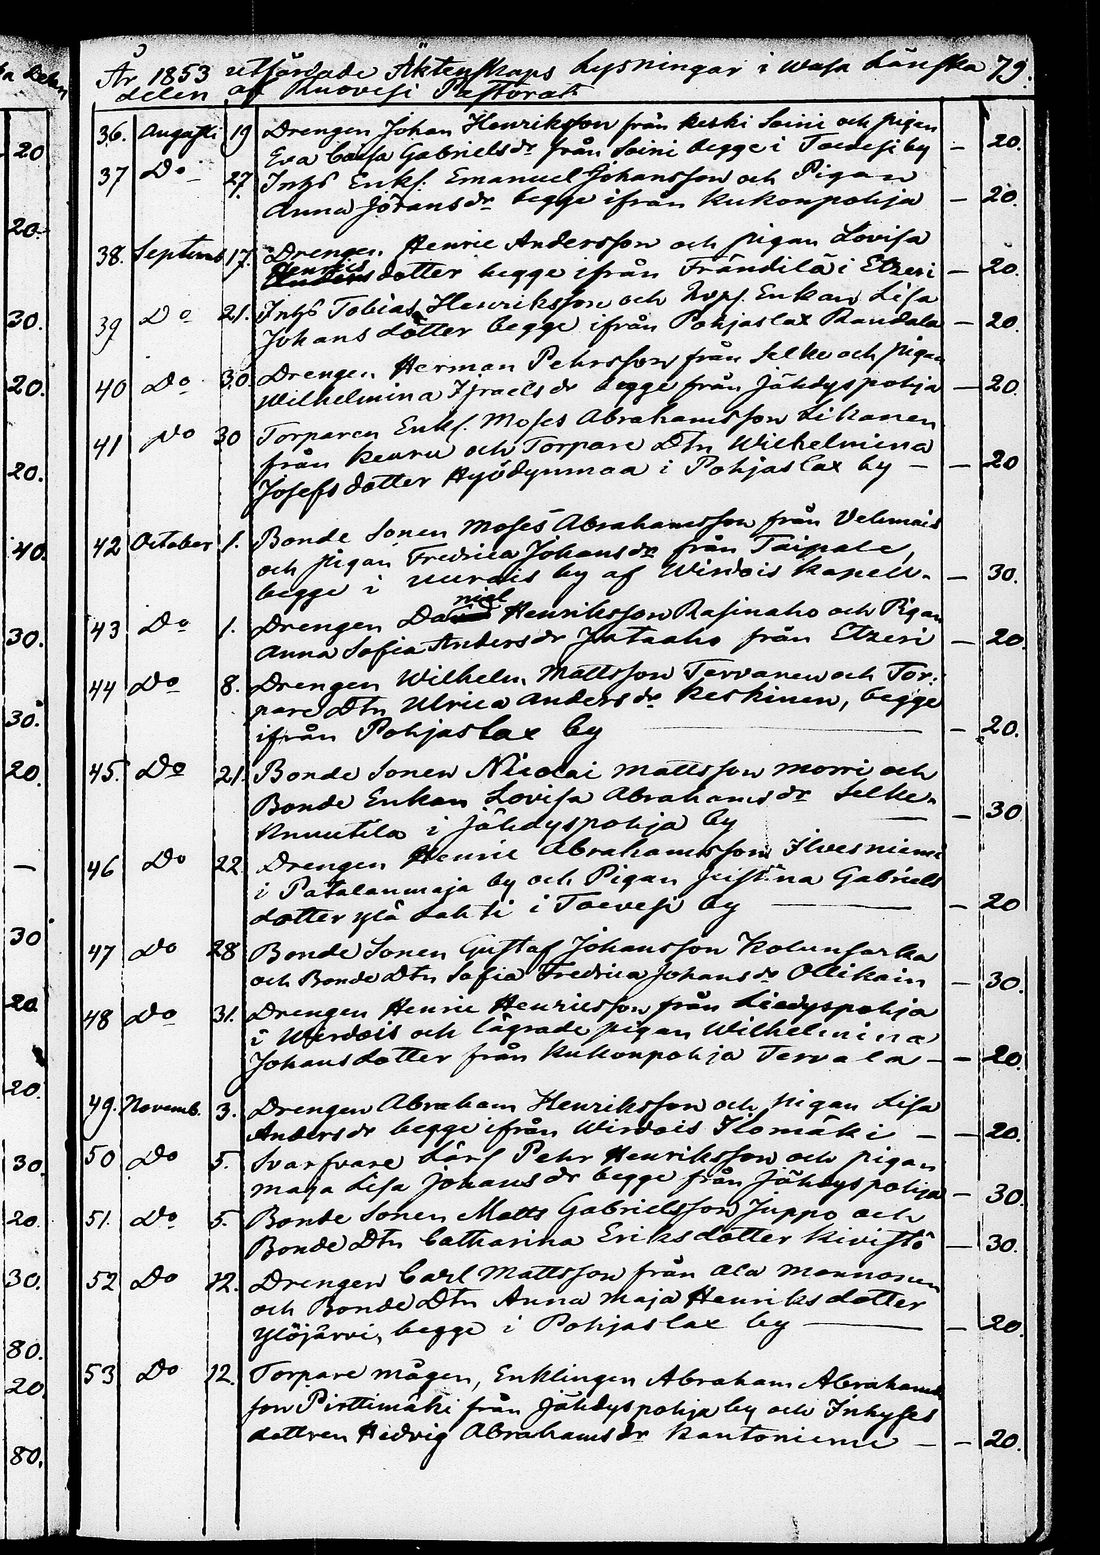 År 1853 utfärdade Äktenskaps Lysningar i Wasa Länska 79.
delen af Ruovesi Pastorat
36. Augusti 19 Drengen Johan Henriksson från Keski Soini och pigan
Eva Caisa Gabrielsdr från Soini begge i Toevesi by – 20.
37 Do 27. Inhs Enkl. Emanuel Johansson och Pigan
Anna Jöransdr begge ifrån Kukonpohja – 20.
38. Septemb. 17. Drengen Henric Andersson och pigan Lovisa
Henrics
dotter begge ifrån Frändilä i Etzeri – 20.
39 Do 21. Inhs Tobias Henriksson och Enkan Lisa
Johansdotter begge ifrån Pohjaslax Randala – 20.
40 Do 30 Drengen Herman Pehrsson från Selke och pigan
Wilhelmina Israelsdr begge från Jähdyspohja – 20.
41 Do 30 Torparen Enkl. Moses Abrahamsson Likanen
från Keuru och Torpare Dtn Wilhelmina
Josefsdotter Hyödynmaa i Pohjaslax by – – 20
42 October 1. Bonde Sonen Moses Abrahamsson från Vehmais
och pigan Fredrica Johansdr från Taipale,
begge i Uurais by af Wirdois Kapell. – 30.
43 Do 1. Drengen Daniel Henriksson Rasinaho och Pigan
Anna Sofia Andersdr Jutaaho från Etzeri – 20
44 Do 8. Drengen Wilhelm Mattsson Tervanen och Tor:
pare Dtn Ulrica Andersdr Keskinen, begge
ifrån Pohjaslax by – 20.
45. Do 21. Bonde Sonen Nicolai Mattsson Morri och
Bonde Enkan Lovisa Abrahamsdr Selke-
Knuutila i Jähdyspohja by – 30
46 Do 22. Drengen Henric Abrahamsson Ilvesniemi
i Patalanmaja by och Pigan Justina Gabriels
dotter Ylä Lahti i Toevesi by – 20
47 Do 28 Bonde Sonen Gustaf Johansson Kolunsarka
och Bonde Dtn Sofia Fredrica Johansdr Ollikain – 30.
48 Do 31. Drengen Henric Henricsson från Liedyspohja
i Wirdois och lägrade pigan Wilhelmina
Johansdotter från Kukonpohja Tervala – – 20.
49. Novemb. 3. Drengen Abraham Henriksson och pigan Lisa
Andersdr begge ifrån Wirdois Ilomäki – – 20.
50 Do 5. Svarfvare Lärl Pehr Henriksson och pigan
Maja Lisa Johansdr begge från Jähdyspohja – 30.
51. Do 5. Bonde Sonen Matts Gabrielsson Juppo och
Bonde Dtn Catharina Eriksdotter Kivistö – 30.
52 Do 12. Drengen Carl Mattsson från Ala Mannonen
och Bonde Dtn Anna Maja Henriksdotter
Ylöjärvi, begge i Pohjaslax by – 20.
53 Do 12. Torpare mågen, Enklingen Abraham Abrahams
son Pirttimäki från Jähdyspohja by och Inhyses
dottren Hedvig Abrahamsdr Kantoniemi – – 20.